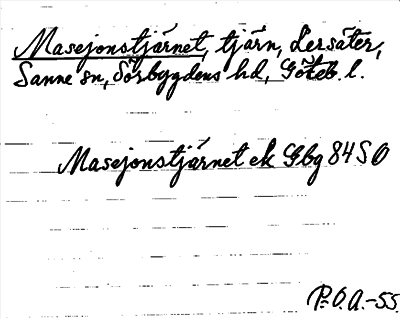 Masejonstjärnet, tjärn, Lersäter,
Sanne sn, Sörbygdens hd, Göteb. l.
Masejonstjärnet ek Gbg 84 SO
P.O.A.-55.